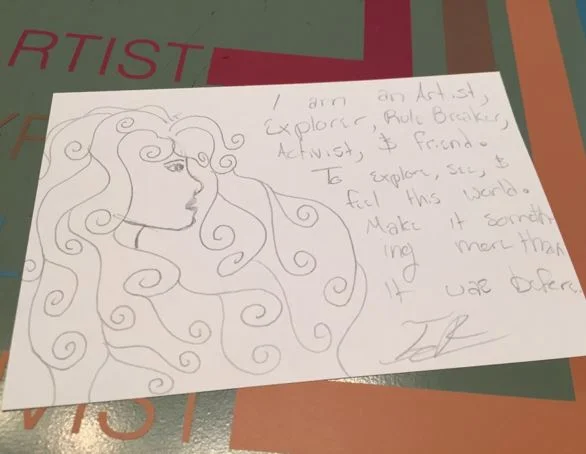 ARTIST
I am an Artist,
Explorer, Rule Breaker,
Activist, $ friend.
To explore, see, $
feel this world.
Make it someth
ing more than
it was before.
VIST